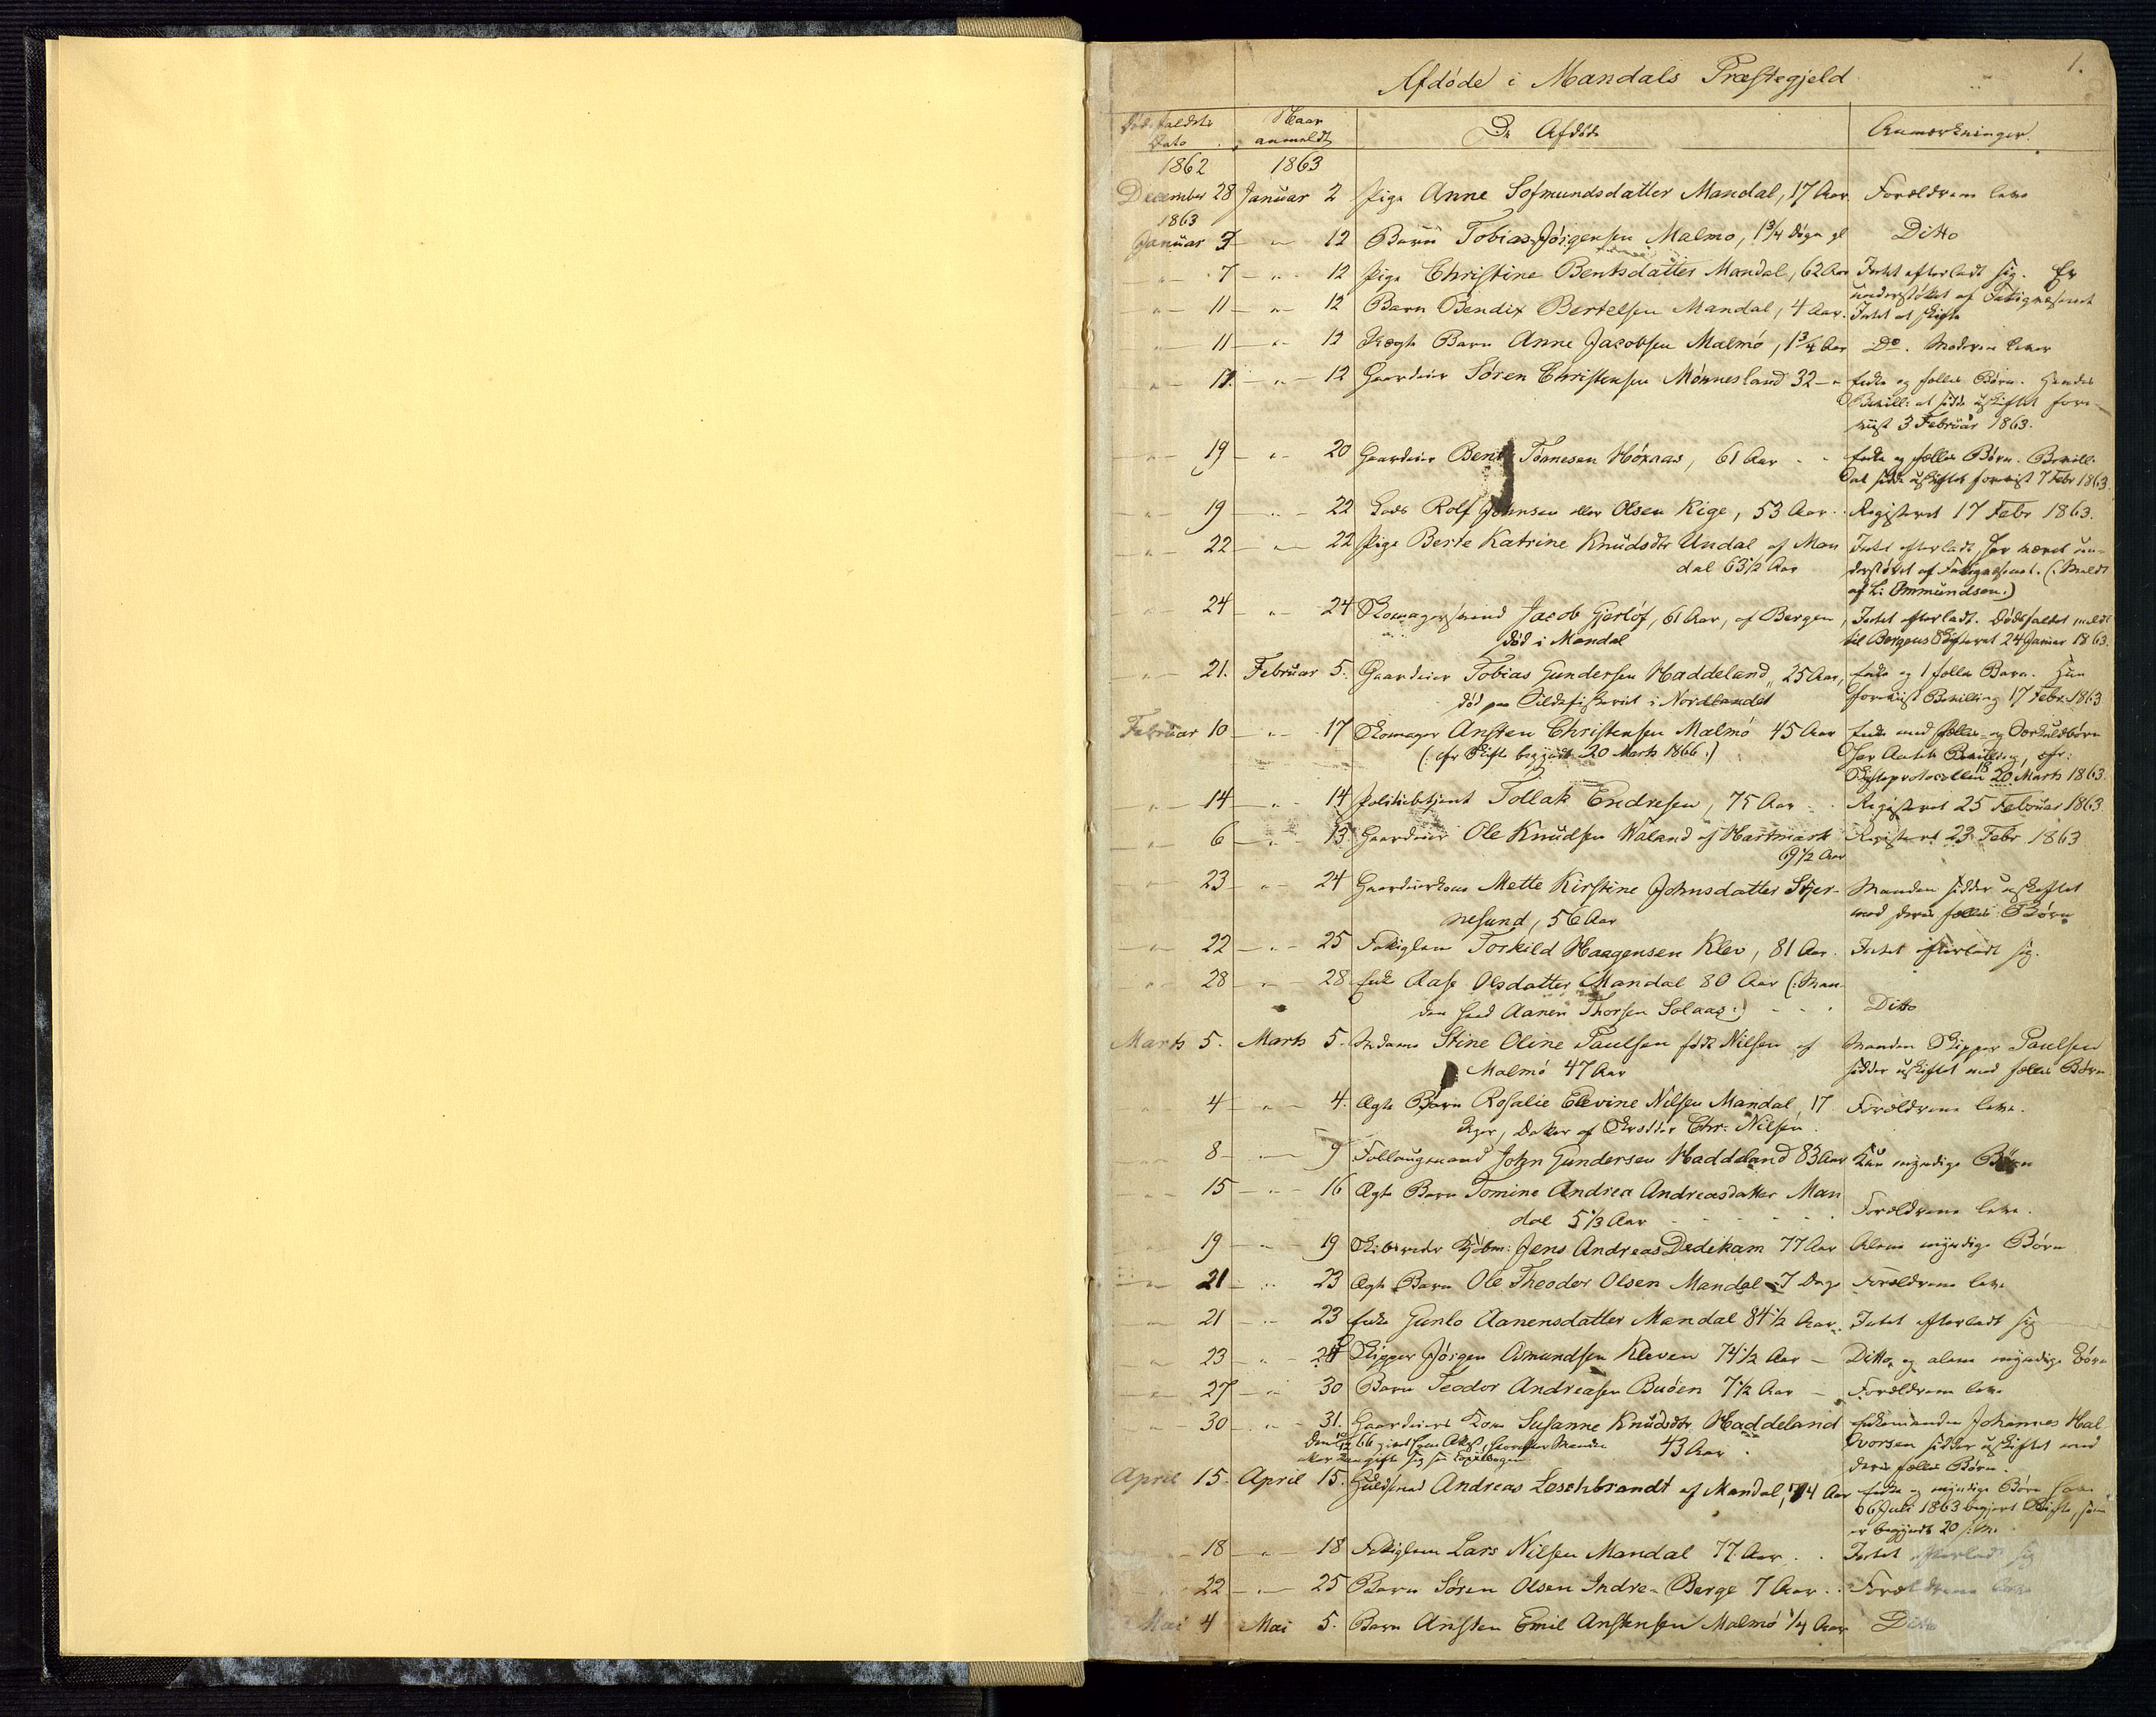 1.
Afdøde i Mandals Præstegjeld
Dødsfaldets Dato Naar anmeldt De Afdøde Anmærkninger.
1862 1863
December 28 Januar 2 Pige Anne Sofmundsdatter Mandal, 17 Aar. Forældrene leve
1863
Januar 3 - " - 12 Barn Tobias Jørgensen Malmø, 1 3/4 Døgn gl Ditto
- " - 7 - " - 12 Pige Christine Bentsdatter Mandal, 62 Aar Intet efterladt sig. Er
understøttet af Fattigvæsenet
- " - 11 - " - 12 Barn Bendix Bertelsen Mandal, 4 Aar. Intet at skifte
- " - 11 - " - 12 Uægte Barn Anne Jacobsen Malmø, 1 3/4 Aar Do. Moderen lever
- " - 11. - " - 12 Gaardeier Søren Christensen Mønnesland 32 - " Enke og fælles Børn. Hendes
Bevill: at sidde uskiftet fore-
viist 3 Februar 1863.
- " - 19 - " - 20 Gaardeier Bent Tønnesen Høxaas, 61 Aar - - Enke og fælles Børn. Bevill:
at sidde uskiftet forevist 7 Febr 1863.
- " - 19 - " - 22 Lods Rolf Johnsen eller Olsen Rige, 53 Aar - Registeret 17 Febr 1863.
- " - 22 - " - 22 Pige Berte Katrine Knudsdtr Undal af Man Intet efterladt, har været un-
dal 63 1/2 Aar derstøttet af Fattigvæsenet. (: Meldt
af L: Ommundsen.)
- " - 24 - " - 24 Skomagersvend Jacob Gjerløf, 61 Aar, af Bergen, Intet efterladt. Dødsfaldet meldt
død i Mandal til Bergens Skifteret 24 Januar 1863.
- " - 21. Februar 5. Gaardeier Tobias Gundersen Haddeland, 25 Aar, Enke og 1 fælles Barn. Hun
død paa Sildefiskeriet i Nordlandet foreviist Bevilling 17 Febr. 1863
Februar 10 - " - 17 Skomager Ansten Christensen Malmø 45 Aar Enke med fælles og Særkuldbørn
(: cfr Skifte begyndt 20 Marts 1866 :) Bevilling, cfr:
Skifteprotocollen 20 Marts 1863.
- " - 14 - " - 14 Politibetjent Tollak Endresen, 75 Aar - Registeret 25 Februar 1863
- " - 6 - " - 13 Gaardeier Ole Knudsen Waland af Hartmark Registeret 23 Febr 1863
69 1/2 Aar
- " - 23 - " - 24 Gaardeierkone Mette Kirstine Johnsdatter Skjer- Manden sidder uskiftet
nesund, 56 Aar med deres fælles Børn
- " - 22 - " - 25 Fattiglem Torkild Haagensen Klev, 81 Aar. Intet efterladt sig.
- " - 28 - " - 28 Enke Aase Olsdatter Mandal 80 Aar (: Man-
den hed Aanen Thorsen Solaas :) - - - Ditto
Marts 5. Marts 5. Madame Stine Oline Paulsen født Nilsen af Manden Skipper Paulsen
Malmø 47 Aar sidder uskiftet med fælles Børn
- " - 4 - " - 4. Ægte Barn Rosalie Elevine Nilsen Mandal, 17 Forældrene leve.
Uger, Datter af Chr: Nilsen
- " - 8 - " - 9 Føllaugsmand John Gundersen Haddeland 83 Aar Kun myndige Børn
- " - 15 - " - 16 Ægte Barn Tomine Andrea Andreasdatter Man
dal 5 1/3 Aar - - - - Forældrene leve.
- " - 19 - " - 19 Skibsreder Kjøbm: Jens Andreas Dedekam 77 Aar Alene myndige Børn
- " - 21 - " - 23 Ægte Barn Ole Theodor Olsen Mandal 7 Dage Forældrene leve
- " - 21 - " - 23 Enke Gunlo Aanensdatter Mandal 84 1/2 Aar. Intet efterladt sig
- " - 23 - " - 24 Skipper Jørgen Asmundsen Kleven 74 1/2 Aar - Ditto, og alene myndige Børn
- " - 27 - " - 30 Barn Teodor Andreasen Buøen 7 1/2 Aar - Forældrene leve
- " - 30 - " - 31. Gaardeiers Kone Susanne Knudsdtr Haddeland Enkemanden Johannes Hal
43 Aar. vorsen sidder uskiftet med
deres fælles Børn.
April 15. April 15. Guldsmed Andreas Loschbrandt af Mandal, 74 Aar Enke og myndige Børn have
6 Juli 1863 begjert Skifte, som
er begyndt 20 s. M.
- " - 18 - " - 18 Fattiglem Lars Nilsen Mandal 77 Aar . . Intet efterladt sig
- " - 22 - " - 25 Barn Søren Olsen Indre-Berge 7 Aar . . Forældrene leve
Mai 4 Mai 5. Barn Ansten Emil Anstensen Malmø 1/4 Aar Ditto